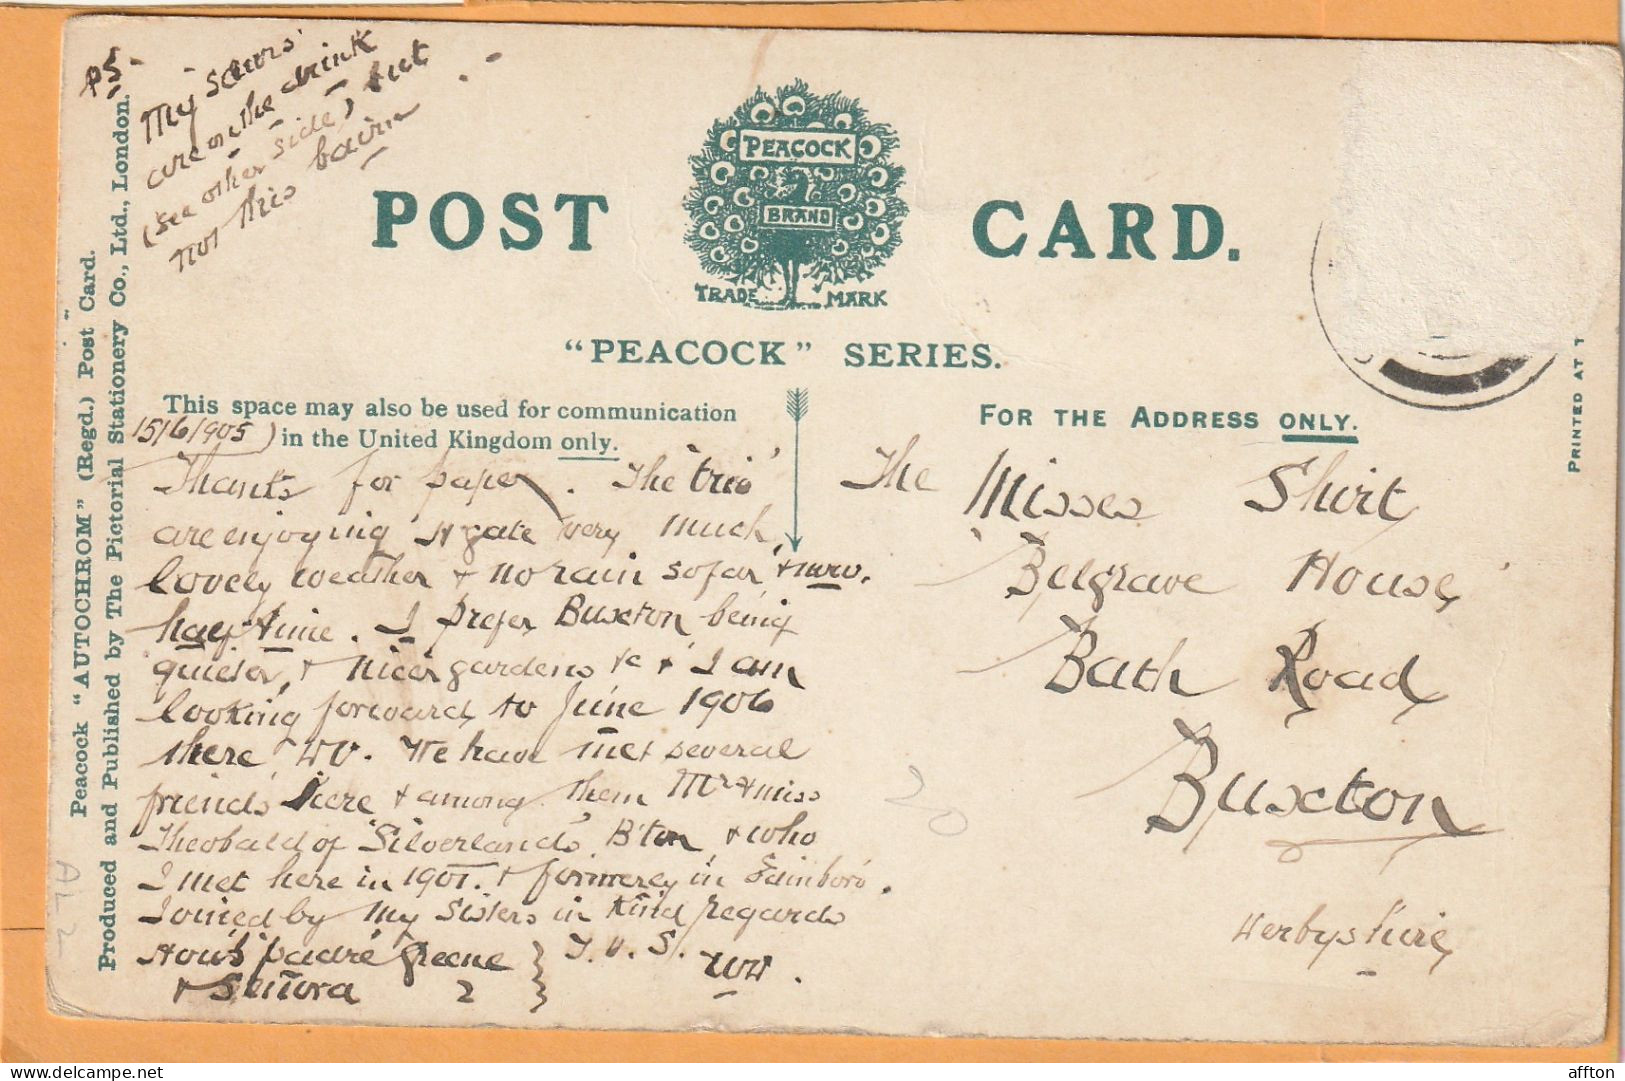 PS.
My sisters'
are on the drink
(see other side) but
not this bairn
POST CARD.
PEACOCK
BRAND
TRADE MARK
"PEACOCK" SERIES.
This space may also be used for communication
15/6/1905) in the United Kingdom only.
FOR THE ADDRESS ONLY.
PRINTED AT T
Peacock "AUTOCHROM" (Regd.) Post Card.
Produced and Published by The Pictorial Stationery Co., Ltd., London.
Thanks for paper. The 'trio'
are enjoying H'gate very much,
lovely weather & no rain so far,
half time. I prefer Buxton being
quieter, & nicer gardens &c & I am
looking forward to June 1906
there, DV. We have met several
friends here & among them Mr & Miss
Theobald of 'Silverlands' B'ton, & who
I met here in 1901. & formerly in Edinboro'.
Joined by my Sisters in kind regards
How's 'padre' Greene
& Señora ?
T. V. S.
The Misses Shirt
Belgrave House,
Bath Road,
Buxton
Derbyshire,
20
AL 2
affton